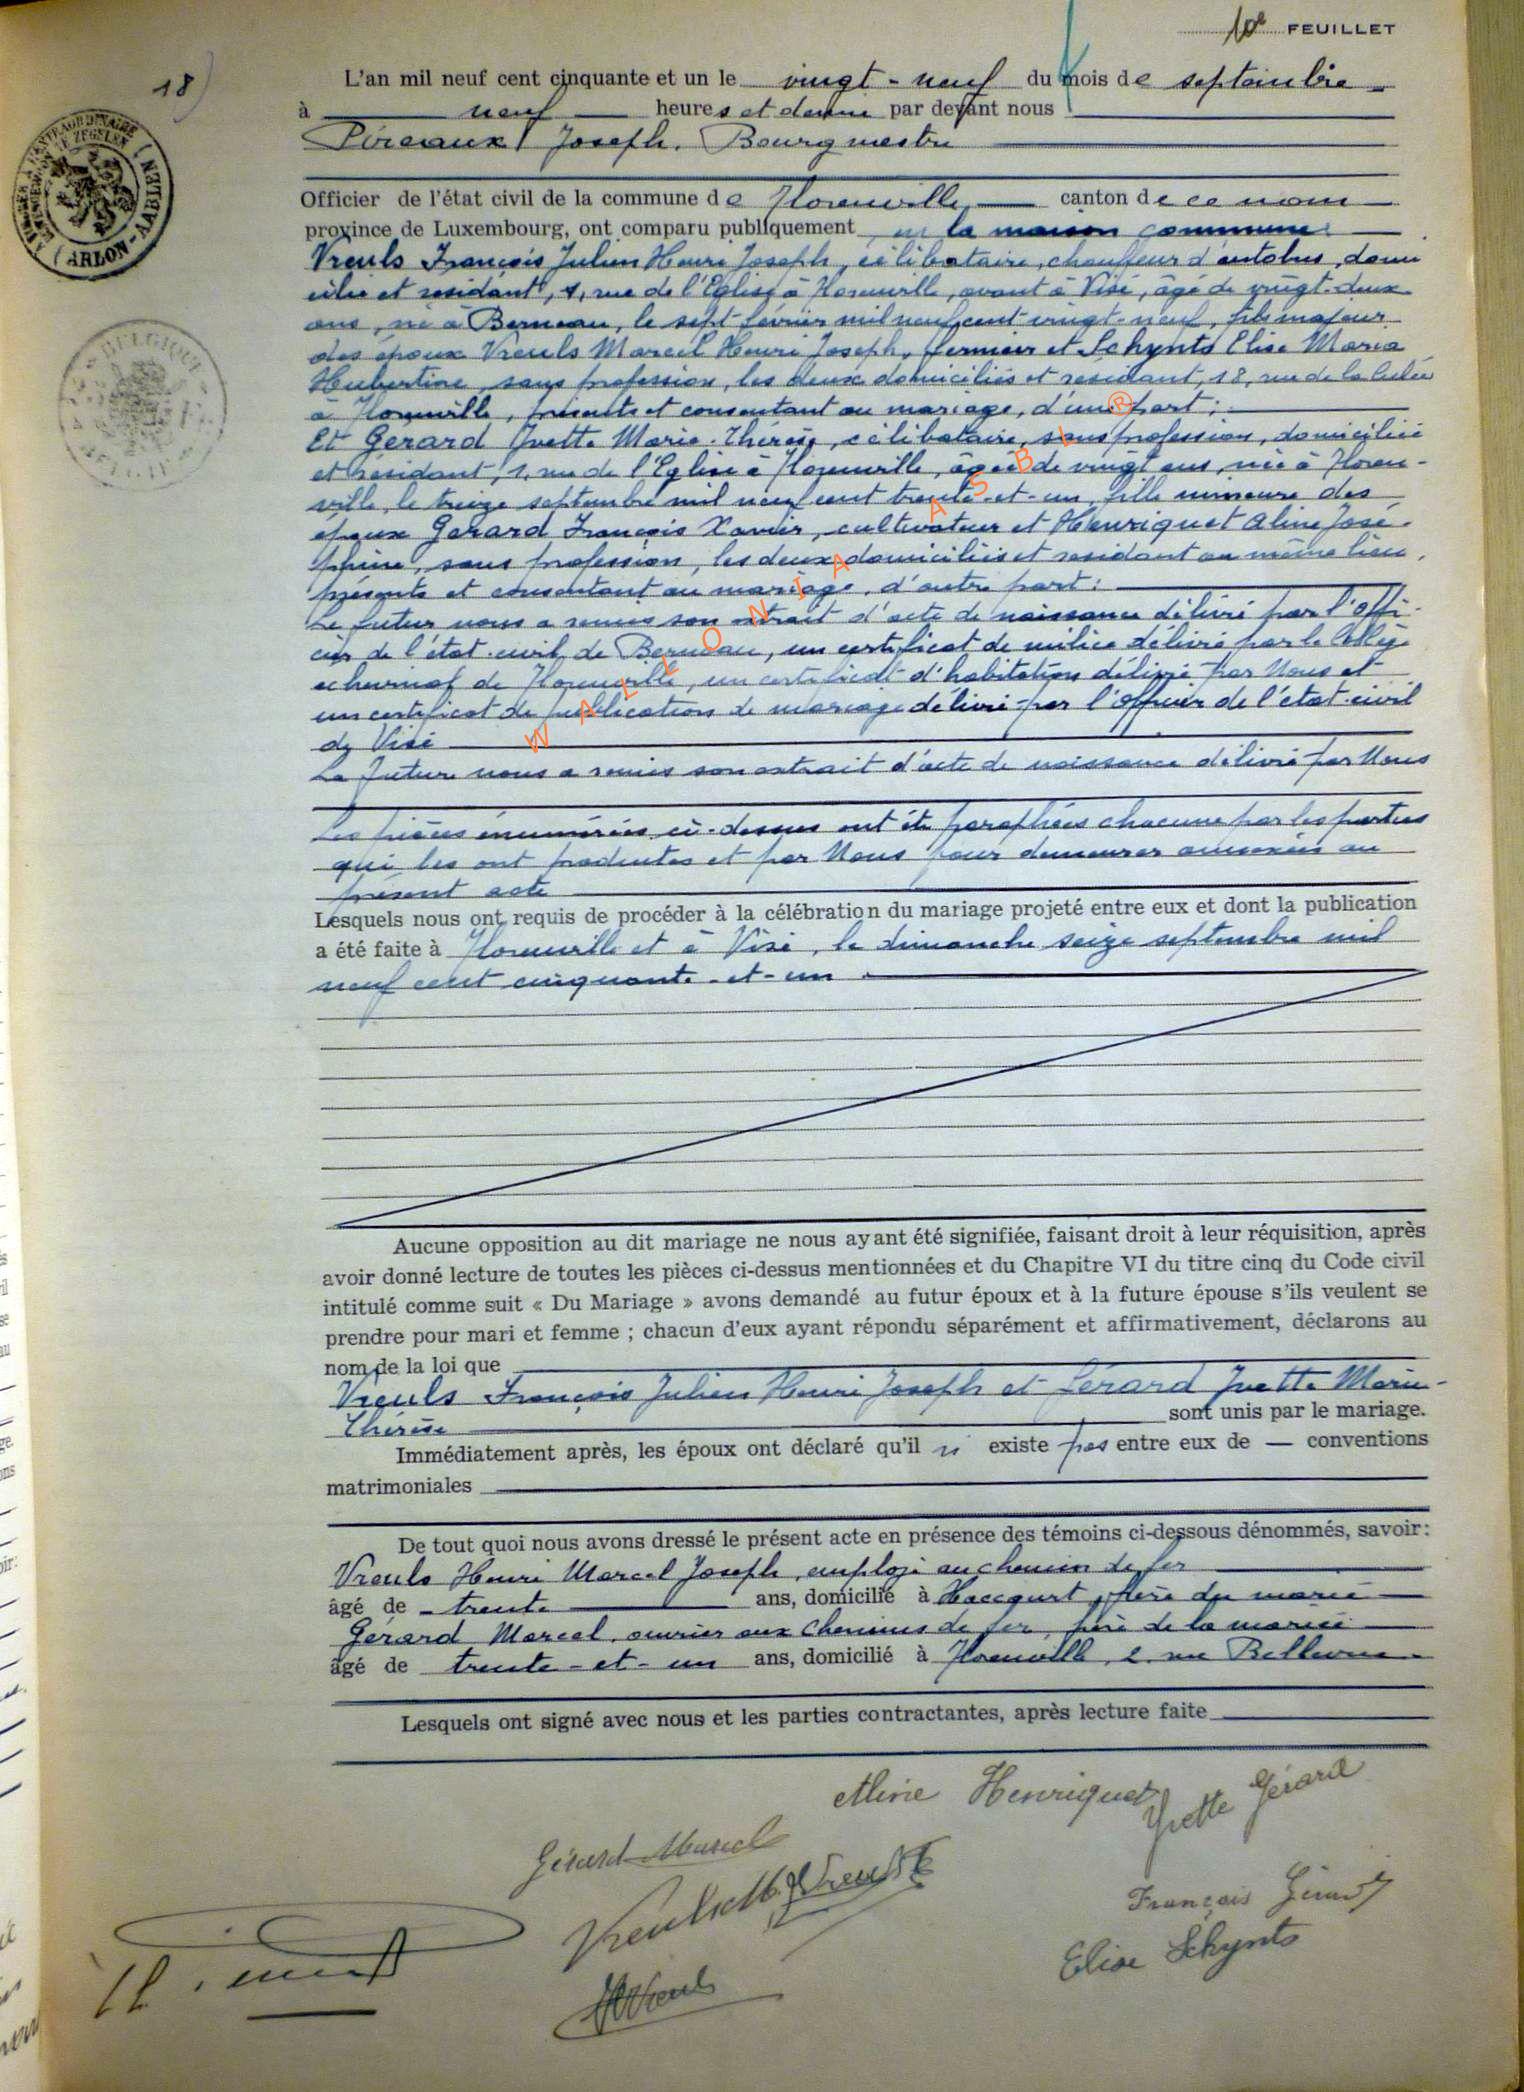 10e FEUILLET
18)
L'an mil neuf cent cinquante et un le vingt-neuf du mois de septembre
à neuf heures et demie par devant nous
Joseph. Bourgmestre
Officier de l'état civil de la commune de Florenville canton de ce nom
province de Luxembourg, ont comparu publiquement en la maison commune:
Vreuls François Julien Henri Joseph, célibataire, chauffeur d'autobus, domi
cilié et résidant, 1, rue de l'Eglise à Florenville, avant à Visé, âgé de vingt-deux
ans, né à Berneau, le sept février mil neuf cent vingt-neuf, fils majeur
des époux Vreuls Marcel Henri Joseph, fermier et Schynts Elise Maria
Hubertine, sans profession, les deux domiciliés et résidant, 18, rue de la
à Florenville, présents et consentant au mariage, d'une part;
Et Gérard Yvette Marie-Thérèse, célibataire, sans profession, domiciliée
et résidant, 1, rue de l'Eglise à Florenville, âgée de vingt ans, née à Floren-
ville, le treize septembre mil neuf cent trente-et-un, fille mineure des
époux Gérard François Xavier, cultivateur et Henriquet Aline José-
phine, sans profession, les deux domiciliés et résidant au même lieu,
présents et consentant au mariage, d'autre part:
Le futur nous a remis son extrait d'acte de naissance délivré par l'offi-
cier de l'état-civil de Berneau, un certificat de milice délivré par le Collège
échevinal de Florenville, un certificat d'habitation délivré par Nous et
un certificat de publication de mariage délivré par l'officier de l'état-civil
de Visé
La future nous a remis son extrait d'acte de naissance délivré par Nous
Les pièces énumérées ci-dessus ont été paraphées chacune par les parties
qui les ont produites et par Nous pour demeurer annexées au
présent acte
Lesquels nous ont requis de procéder à la célébration du mariage projeté entre eux et dont la publication
a été faite à Florenville et à Visé, le dimanche seize septembre mil
neuf cent cinquante-et-un
Aucune opposition au dit mariage ne nous ayant été signifiée, faisant droit à leur réquisition, après
avoir donné lecture de toutes les pièces ci-dessus mentionnées et du Chapitre VI du titre cinq du Code civil
intitulé comme suit « Du Mariage » avons demandé au futur époux et à la future épouse s'ils veulent se
prendre pour mari et femme ; chacun d'eux ayant répondu séparément et affirmativement, déclarons au
nom de la loi que
Vreuls François Julien Henri Joseph et Gérard Yvette Marie-
Thérèse sont unis par le mariage.
Immédiatement après, les époux ont déclaré qu'il n' existe pas entre eux de — conventions
matrimoniales
De tout quoi nous avons dressé le présent acte en présence des témoins ci-dessous dénommés, savoir:
Vreuls Henri Marcel Joseph, employé au chemin de fer
âgé de trente ans, domicilié à Haccourt, frère du marié
Gérard Marcel, ouvrier aux chemins de fer, frère de la mariée
âgé de trente-et-un ans, domicilié à Florenville, 2, rue Bellevue
Lesquels ont signé avec nous et les parties contractantes, après lecture faite
Aline Henriquet
Yvette Gérard
Gérard Marcel
Vreuls M.
François Gérard
Elise Schynts
Vreuls
WALLONIA ASBL ®
ARLON NETABY-AARLEN
BELGIQUE BELGIE